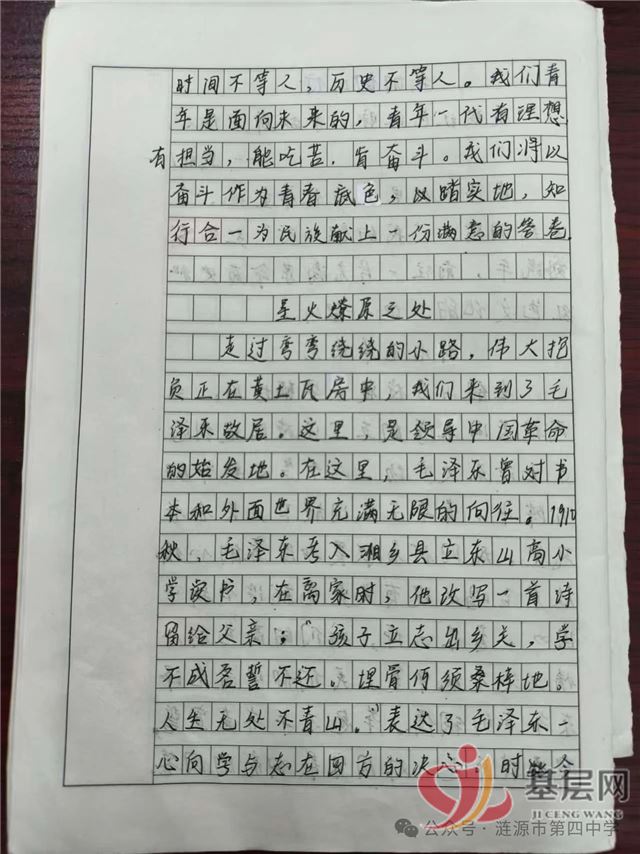 时间不等人，历史不等人。我们青
年是面向未来的，青年一代有理想
有担当，能吃苦，肯奋斗。我们将以
奋斗作为青春底色，以踏实地，知
行合一为民族献上一份满意的答卷
星火燎原之处
走过弯弯绕绕的小路，伟大抱
负正在黄土瓦房中，我们来到了毛
泽东故居。这里，是领导中国革命
的始发地。在这里，毛泽东曾对书
本和外面世界充满无限的向往。1910
秋，毛泽东考入湘乡县立东山高小
学读书，在离家时，他改写一首诗
留给父亲；“孩子立志出乡关，学
不成名誓不还。埋骨何须桑梓地。
人生无处不青山。”表达了毛泽东一
心向学与志在四方的决心，时至今
基层网
JI CENG WANG
公众号·涟源市第四中学